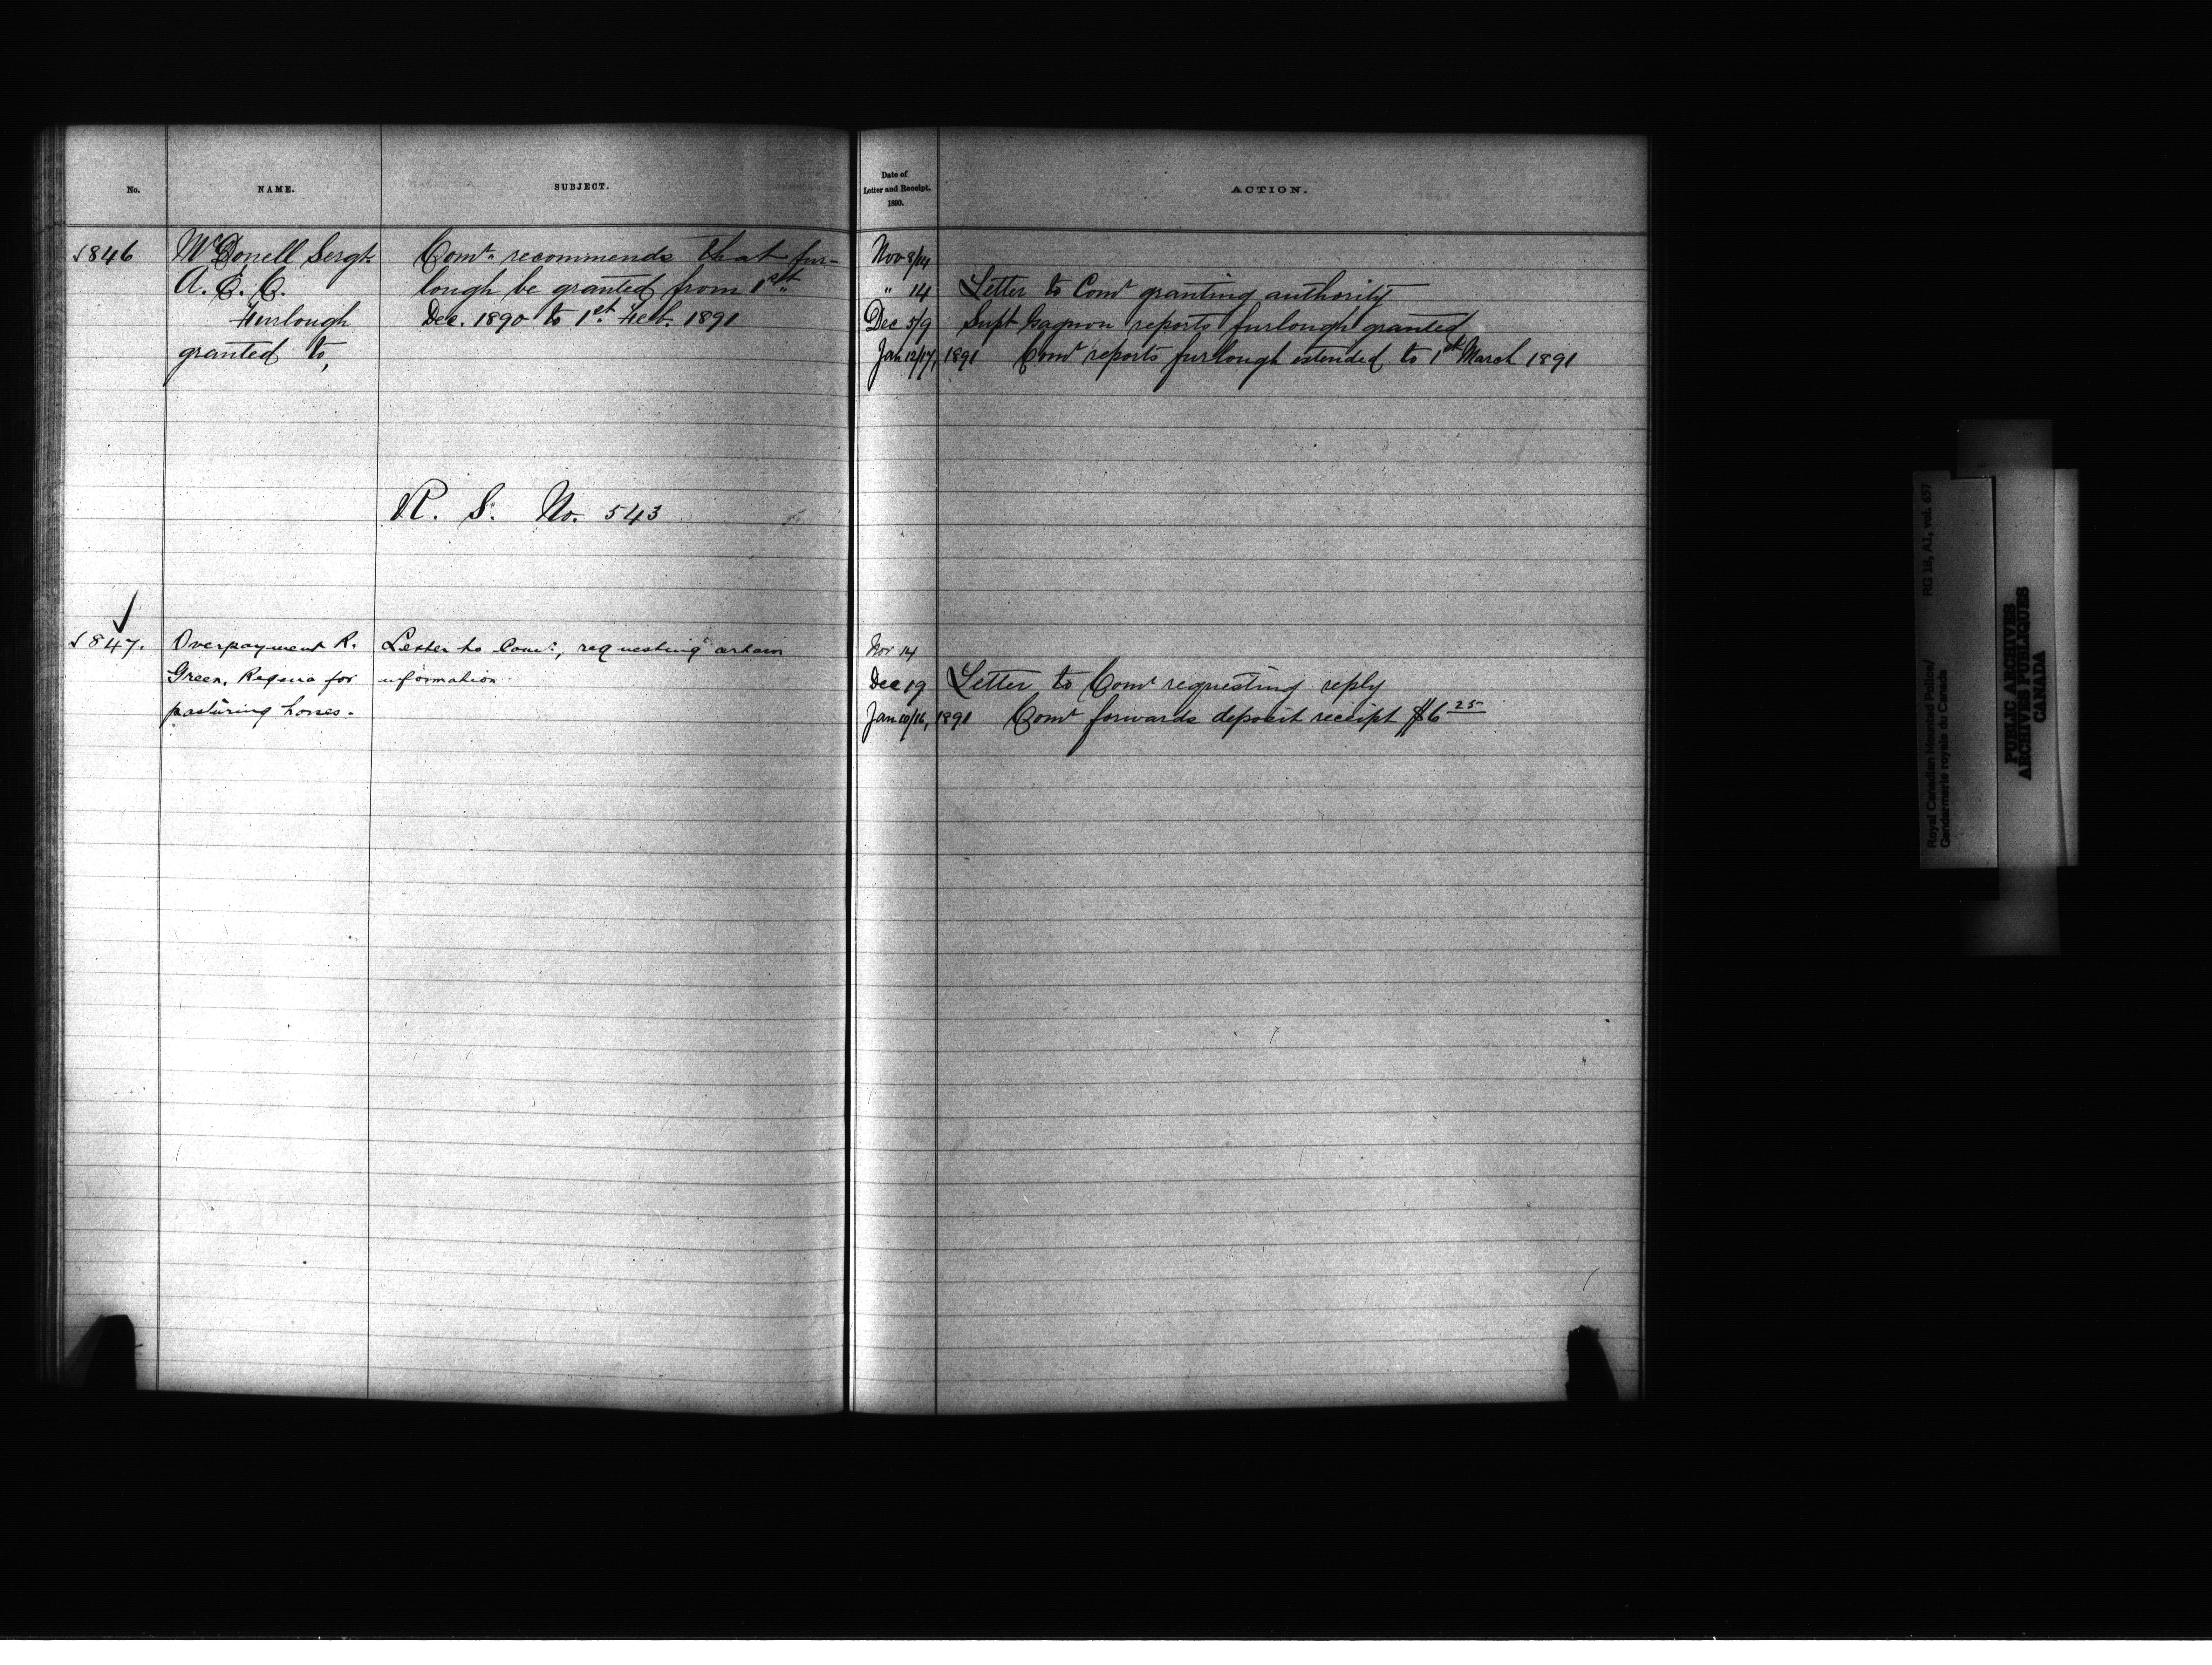 No.
NAME.
SUBJECT.
Date of
Letter and Receipt.
1890.
ACTION.
1846
McDonell Sergt.
A. E. C.
Furlough
granted to,
Comr. recommends that fur-
lough be granted from 1st
Dec. 1890 to 1st. Feb. 1891
R. S. No. 543
Nov 8/14
" 14 Letter to Comr granting authority
Dec 5/9 Supt Gagnon reports furlough granted
Jan 12/17, 1891 Comr reports furlough extended to 1st March 1891
1847.
Overpayment R.
Green, Regina for
pasturing horses.
Letter to Comr., requesting certain
information
Nov 14
Dec 19 Letter to Comr requesting reply
Jan 10/16, 1891 Comr forwards deposit receipt $6 25
Royal Canadian Mounted Police/
Gendarmerie royale du Canada
RG 18, A1, vol. 657
PUBLIC ARCHIVES
ARCHIVES PUBLIQUES
CANADA